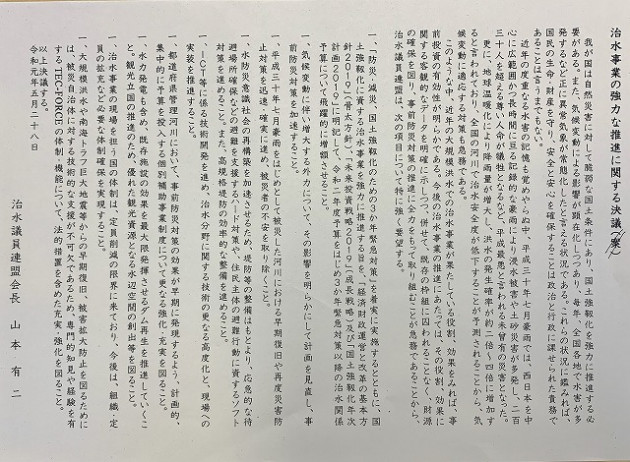 治水事業の強力な推進に関する決議(案)
我が国は自然災害に対して脆弱な国土条件にあり、国土強靱化を強力に推進する必
要がある。また、気候変動による影響が顕在化しつつあり、毎年、全国各地で水害が多
発するなど正に異常気象が常態化したと言える状況である。これらの状況に鑑みれば、
国民の生命・財産を守り、安全と安心を確保することは政治と行政に課せられた責務で
あることは言うまでもない。
近年の度重なる水害の記憶も覚めやらぬ中、平成三十年七月豪雨では、西日本を中
心に広範囲かつ長時間に亘る記録的な豪雨により、浸水被害や土砂災害が多発し、二百
三十人を超える尊い人命が犠牲となるなど、平成最悪と言われる未曾有の災害となった。
更に、地球温暖化により降雨量が増大し、洪水の発生確率が約二倍〜四倍に増加す
ると言われており、全国の河川で治水安全度が低下することが予測されることから、気
候変動に適応する対策も急務である。
このような中、近年の大規模洪水での治水事業が果たしている役割、効果をみれば、事
前投資の有効性が明らかである。今後の治水事業の推進にあたっては、その役割、効果に
関する客観的なデータを明確に示しつつ、併せて、既存の枠組に囚われることなく、財源
の確保を図り、事前防災対策の推進に全力をもって取り組むことが急務であることから、
治水議員連盟は、次の項目について特に強く要望する。
一、「防災・減災、国土強靱化のための3か年緊急対策」を着実に実施するとともに、国
土強靱化に資する治水事業を強力に推進する旨を、「経済財政運営と改革の基本方
針2019」(骨太方針)、「未来投資戦略2019」(成長戦略)及び「国土強靱化年次
計画2019」に明記し、令和二年度予算をはじめ3か年緊急対策以降の治水関係
予算について飛躍的に増額させること。
一、気候変動に伴い増大する外力について、その影響を明らかにして計画を見直し、事
前防災対策を加速すること。
一、平成三十年七月豪雨をはじめとして被災した河川における早期復旧や再度災害防
止対策を迅速・確実に進め、被災者の不安を取り除くこと。
一、水防災意識社会の再構築を加速させるため、堤防等の整備はもとより、応急的な待
避場所確保などの避難を支援するハード対策や、住民主体の避難行動に資するソフト
対策を進めること。また、高規格堤防の効率的な整備を進めること。
一、ICT等に係る技術開発を進め、治水分野に関する技術の更なる高度化と、現場への
実装を推進すること。
一、都道府県管理河川において、事前防災対策の効果が早期に発現するよう、計画的、
集中的に予算を投入する個別補助事業制度について更なる強化・充実を図ること。
一、水力発電も含め、既存施設の効果を最大限発揮させるダム再生を推進していくこ
と。観光立国の推進のため、優れた観光資源となる水辺空間の創出等を図ること。
一、治水事業の現場を担う国の体制は、定員削減の限界に来ており、今後は、組織・定
員の拡充など必要な体制確保を実現すること。
一、大規模洪水や南海トラフ巨大地震等からの早期復旧、被害拡大防止を図るために
は、被災自治体に対する技術的な支援が不可欠であるため、専門的知見や経験を有
する「TEC-FORCE」の体制・機能について、法的措置を含めた充実・強化を図ること。
以上決議する。
令和元年五月二十八日
治水議員連盟会長　山本有二